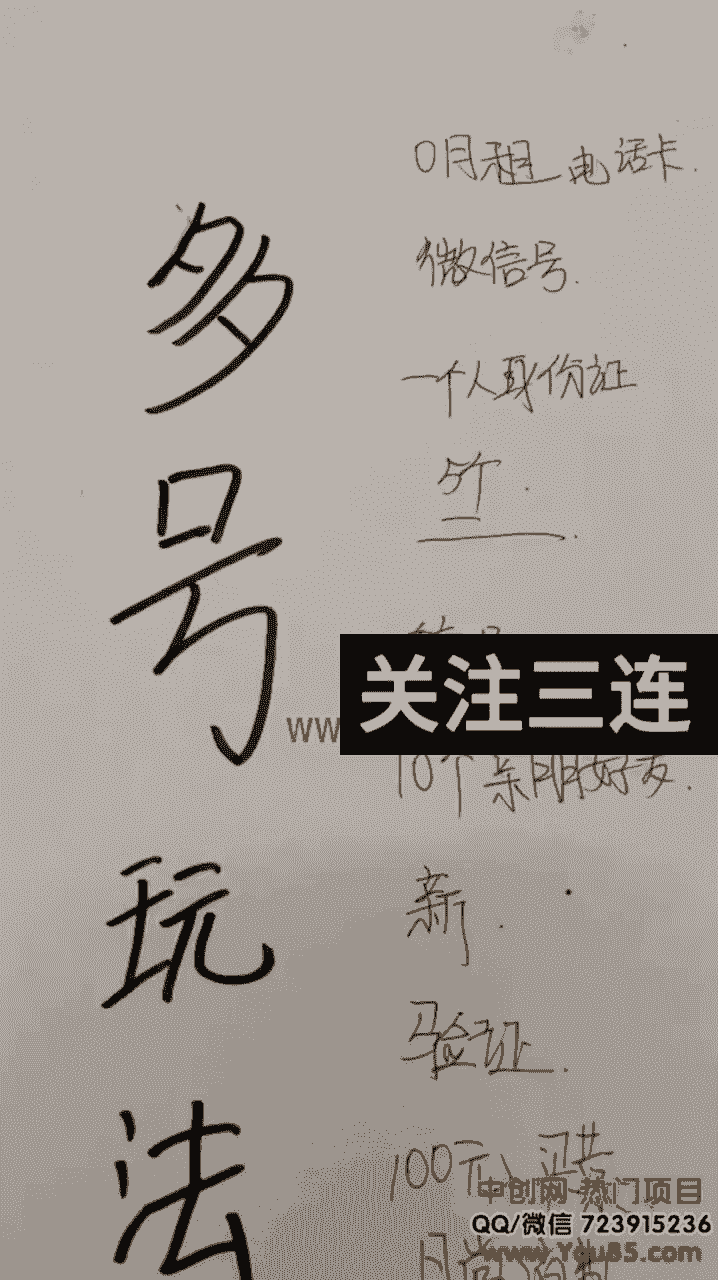 多号玩法
0月租 电话卡.
微信号.
一个人身份证
5个.
关注三连
WW
10个亲朋好友.
新.
验证.
100元、
中创网-热门项目
QQ/微信 723915236
www.You85.com